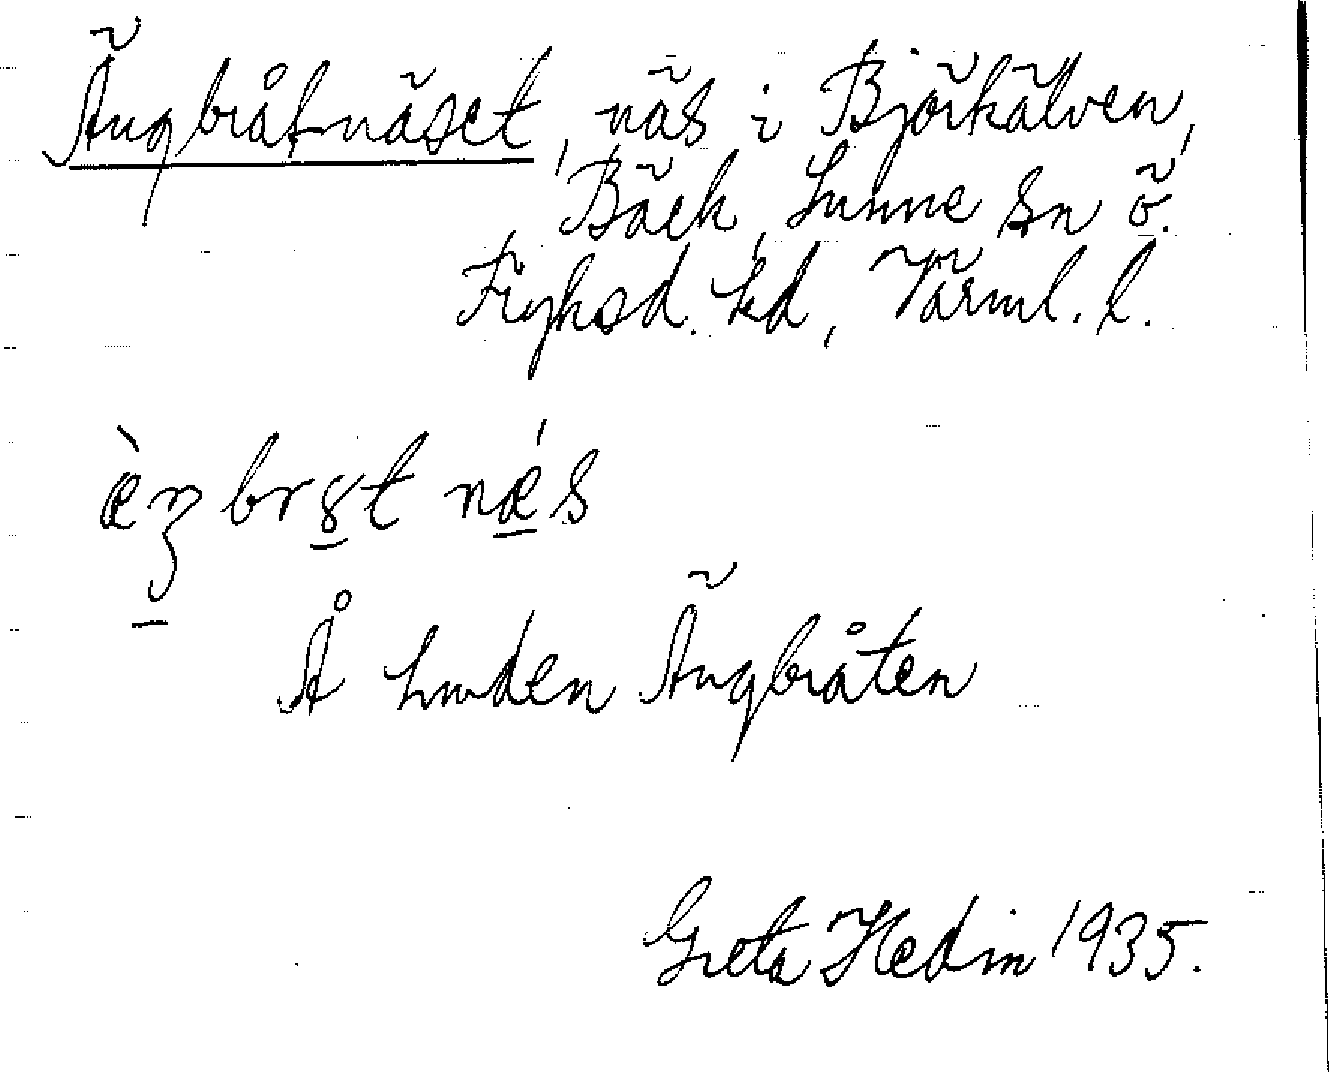 Ängbråtnäset, näs i Björkälven,
Bäck, Sunne sn ö.
Fryksd. hd, Värml. l.
brȣt næ´s
Å hmden Ängbråten
Greta Hedin 1935.